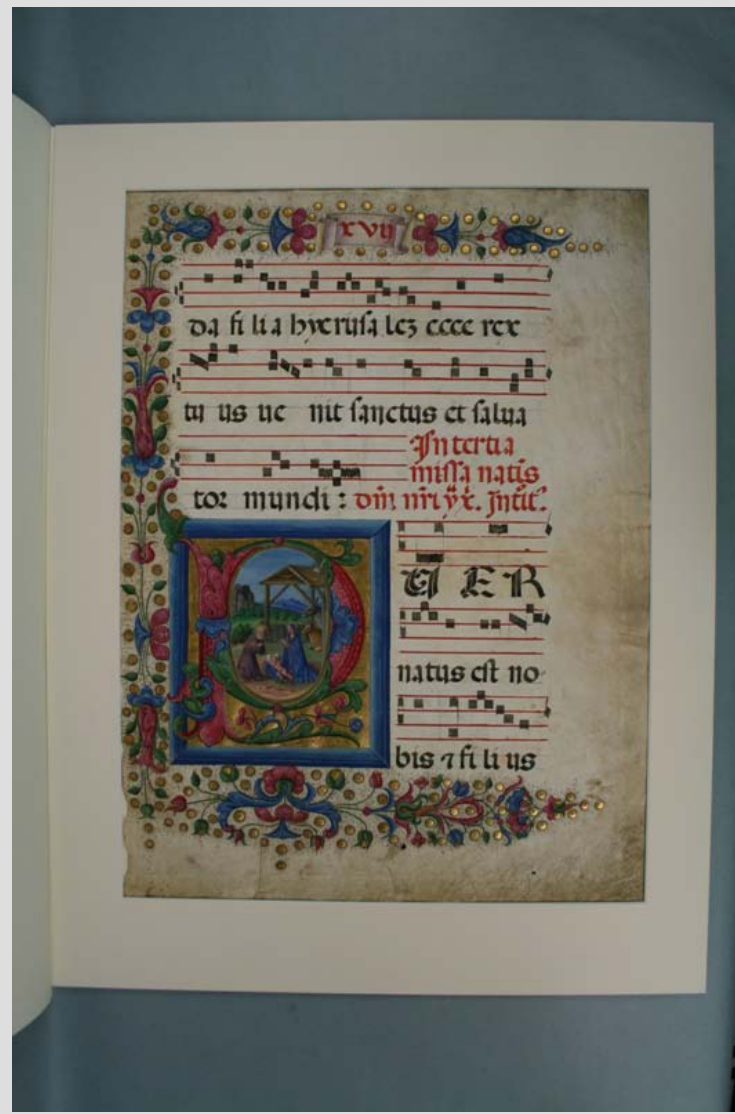 xvij
da fi li a hyerusa leȝ ecce rex
tu us ue nit sanctus et salua
In tertia
missa natis
tor mundi : dm̄ nr̄i yx̄. Intit̄.
PUER
natus est no
bis ⁊ fi li us